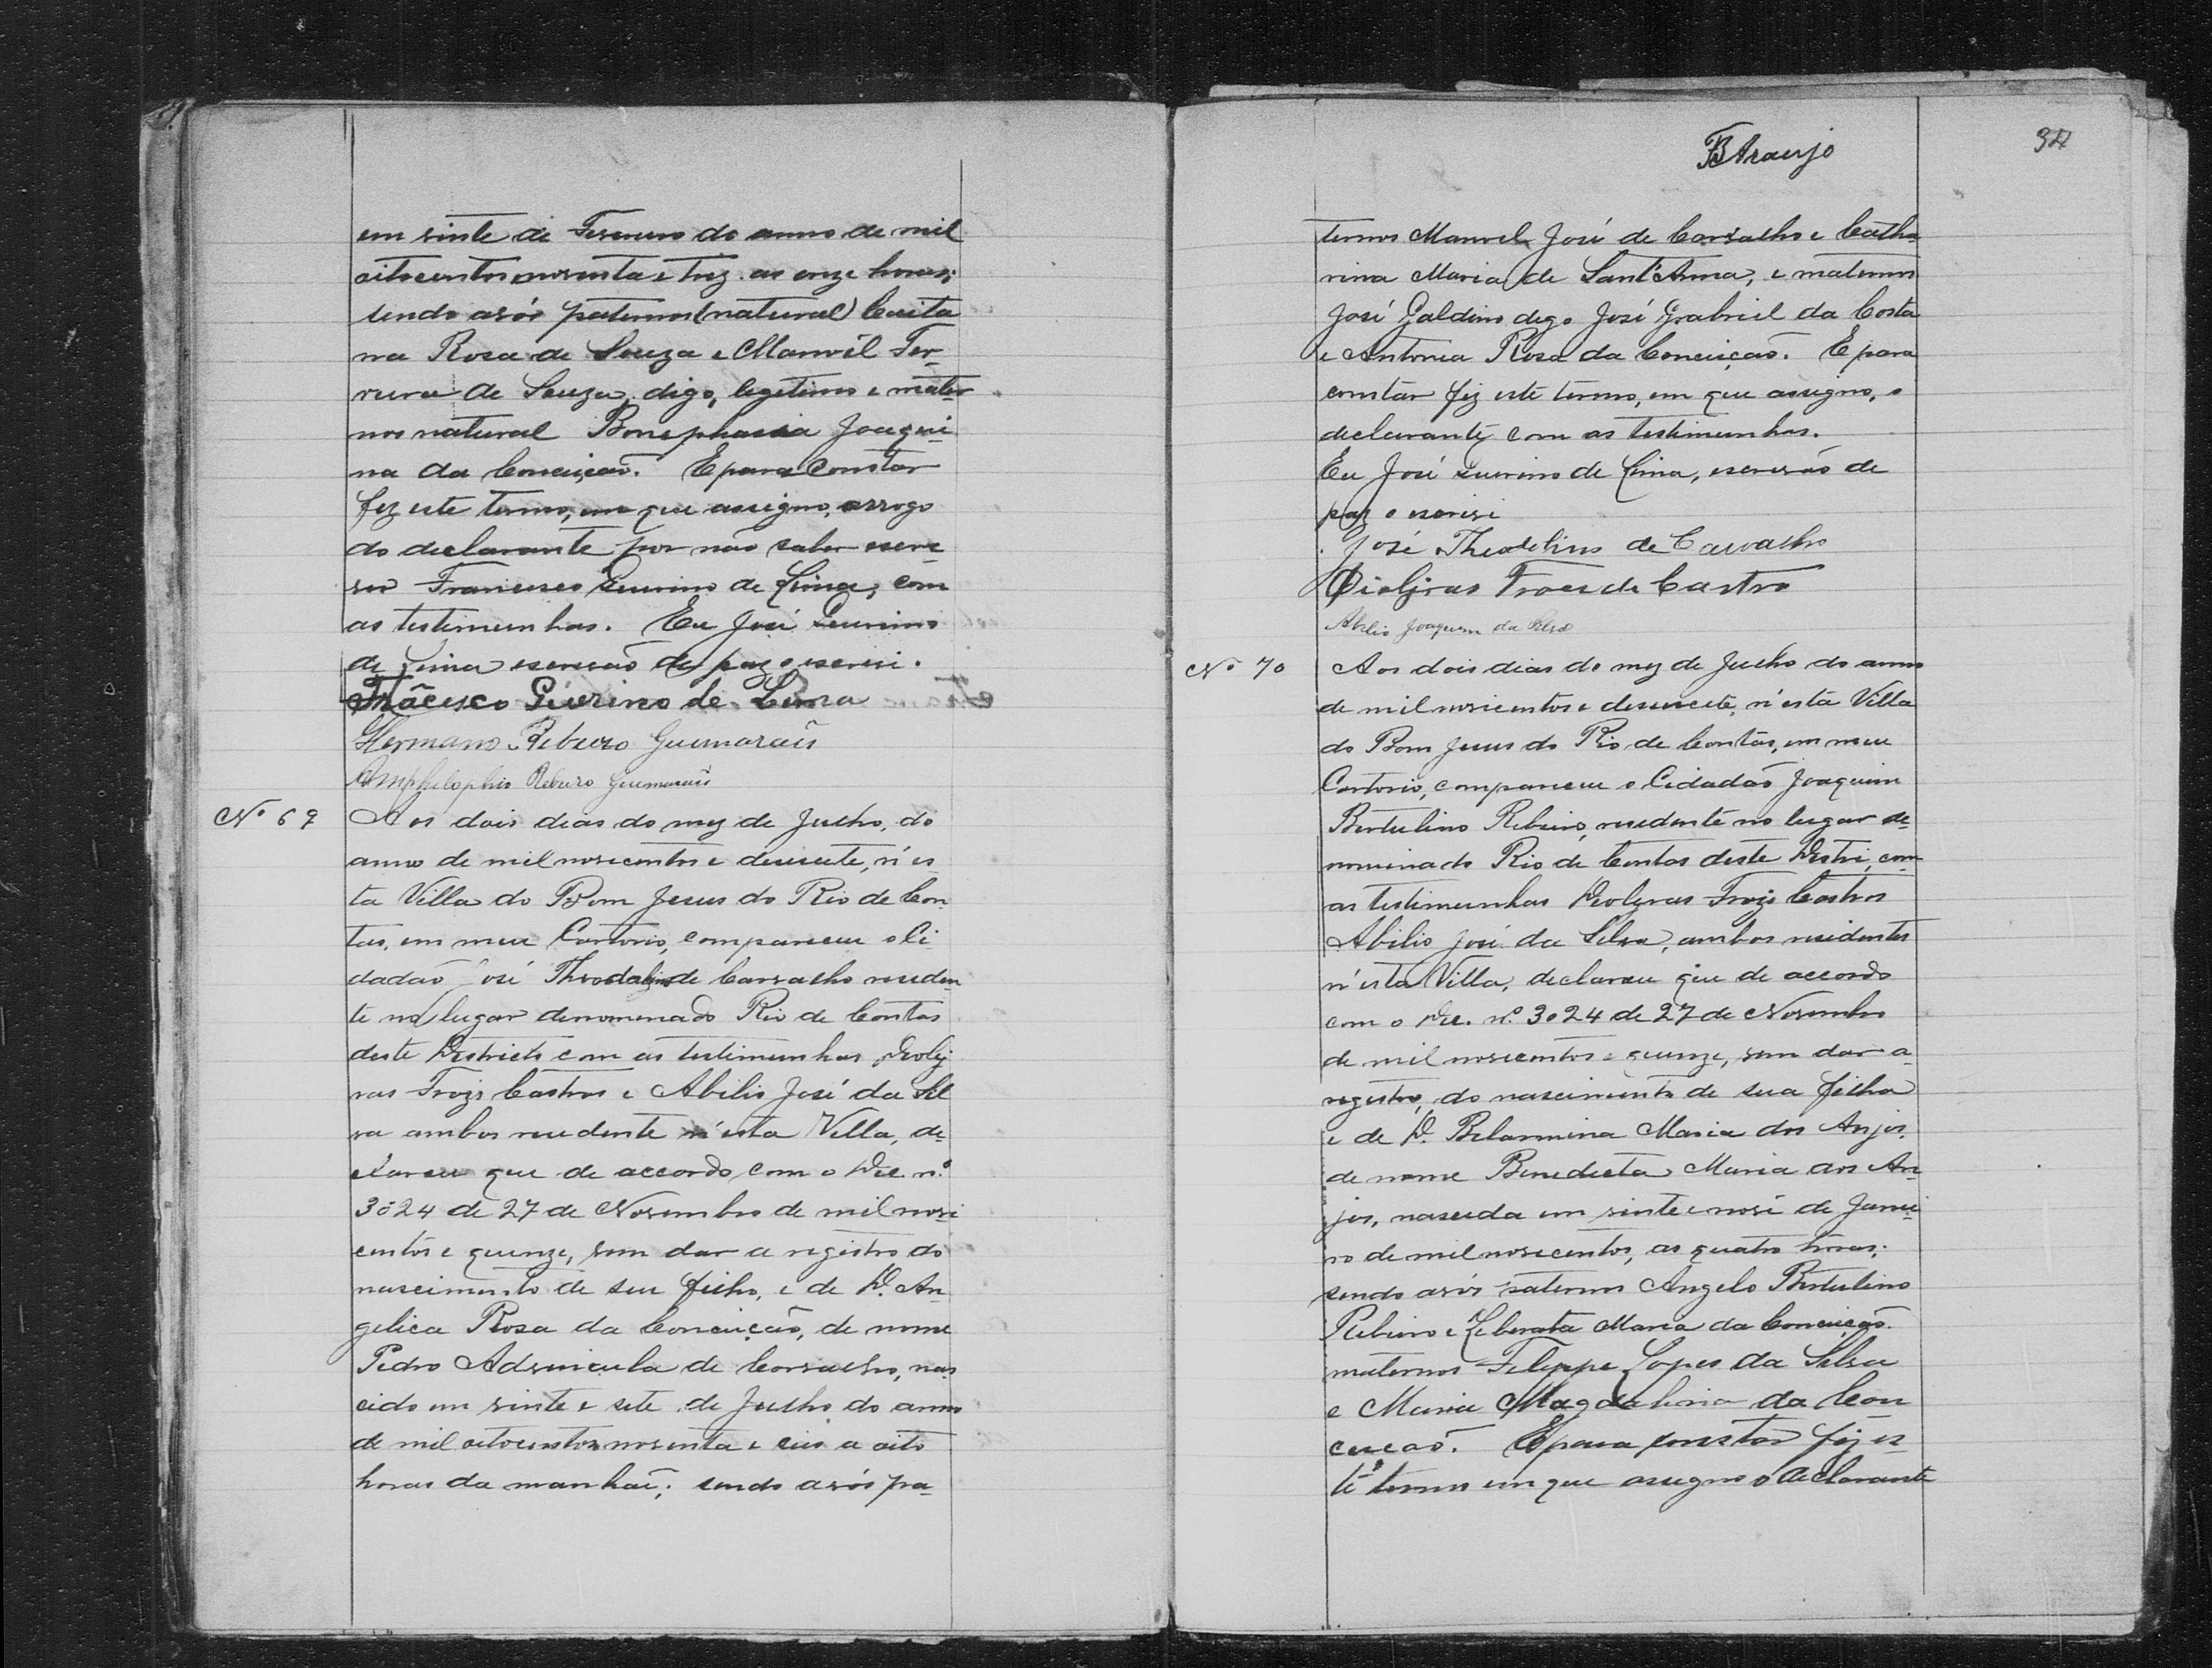 em vinte de Fevereiro do anno de mil
oitocentos noventa e trez. as onze horas;
sendo avós paternos (natural) Caita
na Rosa de Souza e Manoél Fer-
reira de Souza, digo, legitimos e mater
nos natural Bonephacia Joaqui-
na da Conceição. E para constar
fez este termo, em que assigno, arrogo
do declarante por não saber escre
ver Francisco Quirino de Lima, com
as testimunhas. Eu José Quirino
de Lima escrivão de paz o escrivi.
Frâcisco Quirino de Lima
Hermano Ribeiro Guimarães
Amphilophio Ribeiro Guimarães
Nº 69
Aos dois dias do mez de Julho, do
anno de mil novecentos e desecete, n'es
ta Villa do Bom Jesus do Rio de Con
tas, em meu Cartorio, compareceu o Ci
dadão José Theodolino de Carvalho residen
te no lugar denominado Rio de Contas
deste Districto com as testimunhas Deolij
ras Froz Castros e Abilio José da Sil
va ambos residente n'esta Villa, de
clarou que de accordo com o Dec. nº
3024 de 27 de Novembro de mil nove
centos e quinze, vem dar a registro do
nascimento de seu filho, e de D. An
gelica Rosa da Conceição, de nome
Pedro Advincula de Carvalho, nas
cido em vinte e sete de Julho do anno
de mil oitocentos noventa e seis a oito
horas da manhaã; sendo avós pa-
BAraujo
34
ternos Manoel José de Carvalho e Catha
rina Maria de Sant'Anna, e maternos
José Galdino digo José Grabriel da Costa
e Antonia Rosa da Conceição. E para
constar fiz este termo, em que assigno, o
declarante com as testimunhas.
Eu José Quirino de Lima, escrivão de
paz o escrivi
José Theodolino de Carvalho
Dioljras Froes de Castro
Abilio Joaquim da Silva
Nº 70
Aos dois dias do mez de Julho do anno
de mil novicentos e desescete, n'esta Villa
do Bom Jesus do Rio de Contas, em meu
Cartorio, compareceu o Cidadão Joaquim
Bertulino Ribeiro, residente no lugar de-
nominado Rio de Contas deste Destri, com
as testimunhas Deoljras Froz Castros
Abilio José da Silva, ambos residentes
n'esta Villa, declarou que de accordo
com o Dec. nº 3024 de 27 de Novembro
de mil novecentos e quinze, vem dar a
registro, do nascimento de sua filha
e de D. Belarmina Maria dos Anjos,
de nome Benedicta Maria dos An-
jos, nascida em vinte e nove de Janei-
ro de mil novecentos, as quatro horas;
sendo avós paternos Angelo Bertulino
Ribeiro e Leberata Maria da Conceição.
maternos Felippe Lopes da Silva
e Maria Magdalena da Con
ceicaõ. E para constar fiz es
te termo em que assigno o declarante